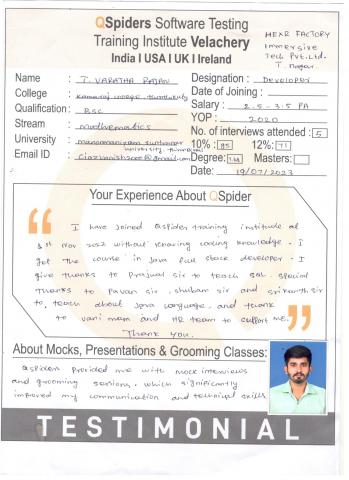 QSpiders Software Testing
Training Institute Velachery
India I USA I UK I Ireland
HEXR FACTORY
Immersive
Tech Pvt. Ltd.
T. nagar.
Name : T. VARATHA RAJAN
Designation : Developer
College : Kamaraj college
Date of Joining :
Qualification : BSC
Salary : 2.5 - 3.5 PA
Stream : mathematics
YOP : 2020
University : manonmaniyam sundaranar
university,
No. of interviews attended : 5
10% : 85 12% : 71
Email ID :
Degree: Masters:
Date: 19/07/2023
Your Experience About QSpider
I have joined Qspider training institude at
1st Nov 2022 without knowing coding knowledge. I
got the course in Java full stack developer. I
give thanks to Prajwal sir to teach SQL. special
thanks to Pavan sir, shubam sir and srikanth sir
to teach about Java language. and thank
to vani mam and HR team to support me.
Thank you.
About Mocks, Presentations & Grooming Classes:
Qspiders provided me with mock interviews
and grooming sessions. which significantly
improved my communication and technical skills
TESTIMONIAL